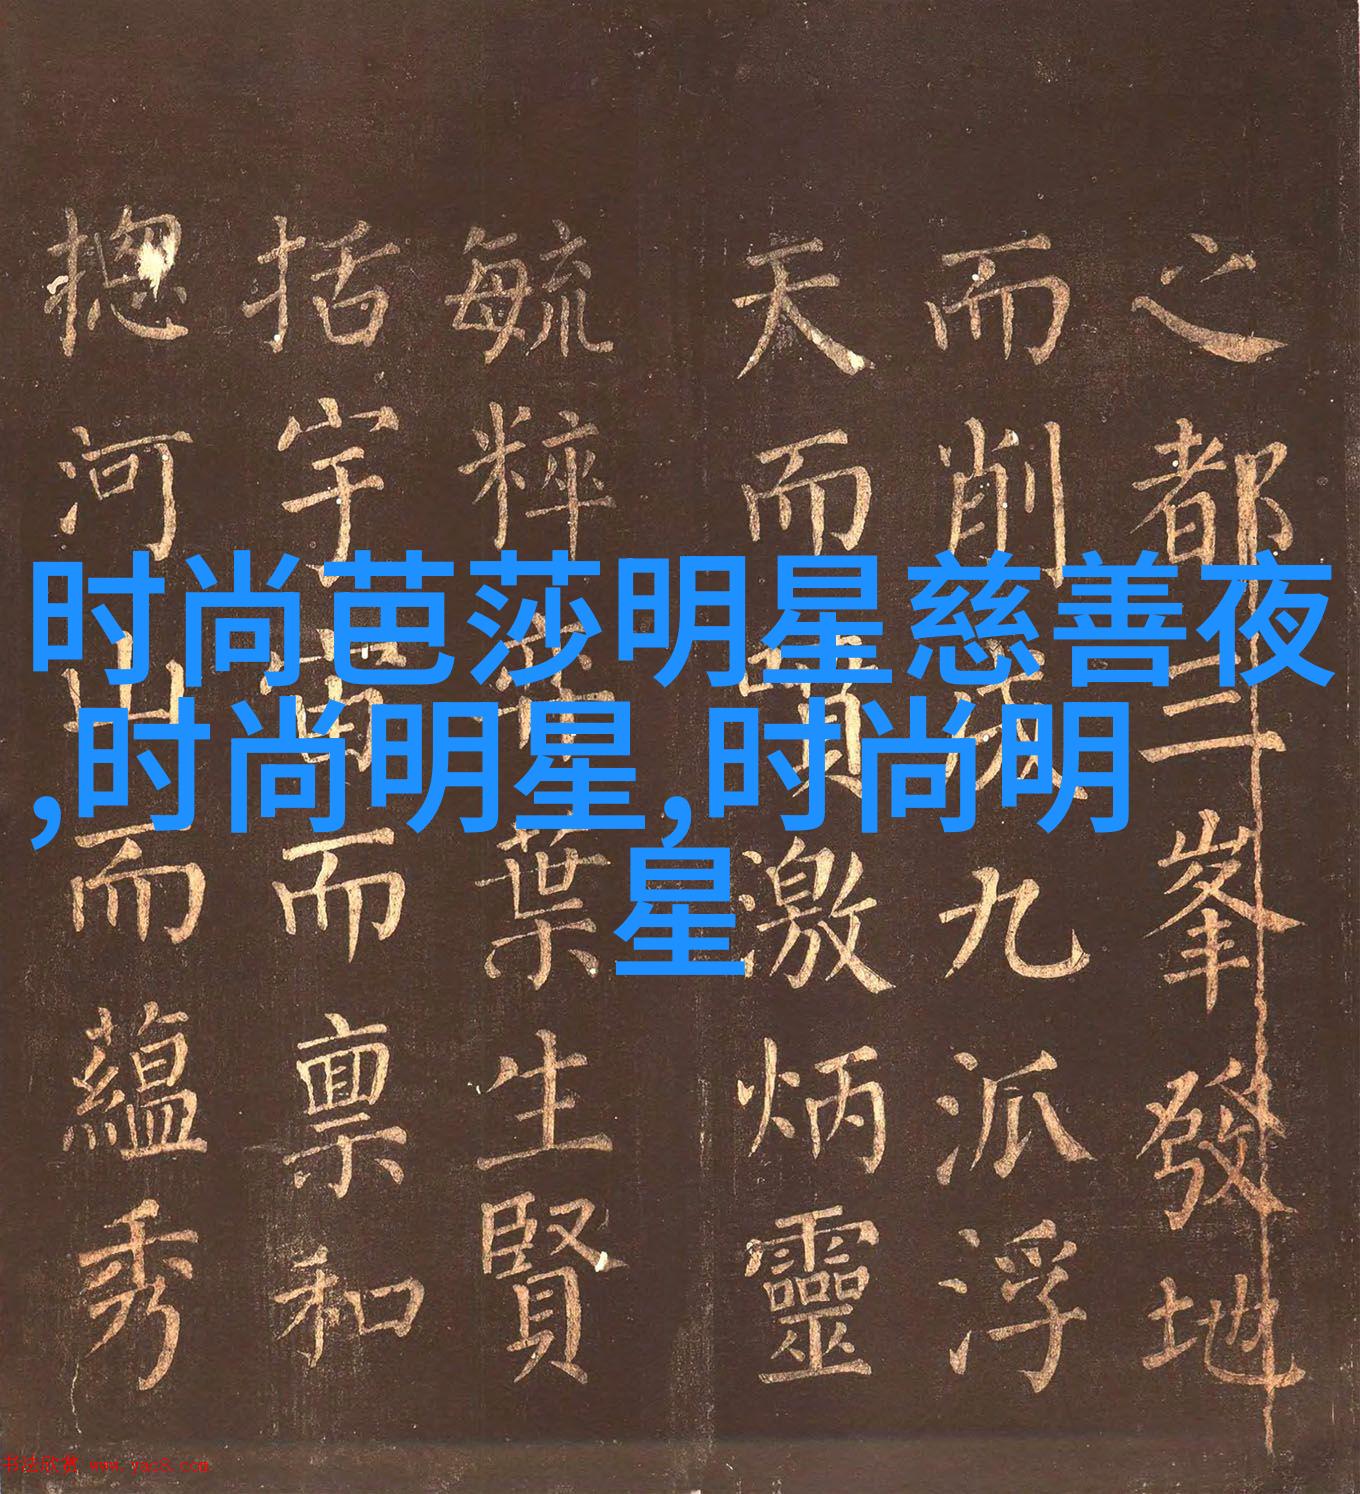 时尚芭莎明星慈善夜
,时尚明星,时尚明
星
之都三峯發地
而削成九派浮
天而噴激炳靈
毓粹葉生賢
括宇宙而禀和
揔河山而蘊秀
书法欣赏 www.yac8.com